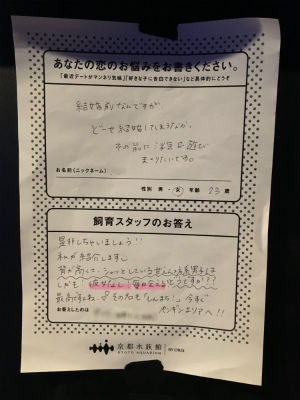 あなたの恋のお悩みをお書きください。
「最近デートがマンネリ気味」「好きな子に告白できない」など具体的にどうぞ
結婚前なんですが
どーせ結婚してしまうなら、
その前に
まくりたいです。
お名前(ニックネーム)
性別 男・女 年齢 23 歳
飼育スタッフのお答え
是非しちゃいましょう!!
私が紹介します。
背が高くて、シャンとしている
しかも 彼女なし! 毎日会える どうですか??
最高ですね。その名も「しんまち」今すぐ
ペンギンエリアへ!!
お答えしたのは
京都水族館
KYOTO AQUARIUM